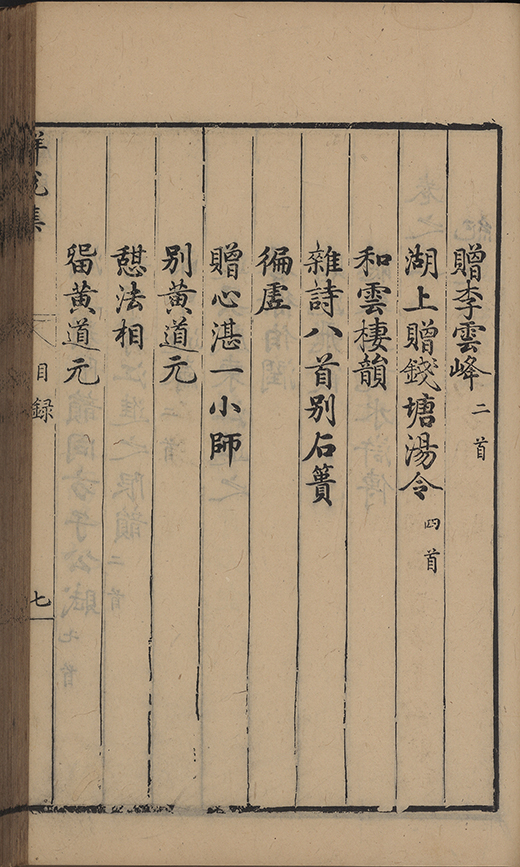 贈李雲峰 二首
湖上贈錢塘湯令 四首
和雲棲韻
雜詩八首别石簣
徧虗
贈心湛一小師
别黃道元
憇法相
畱黃道元
解脫集 目錄 七